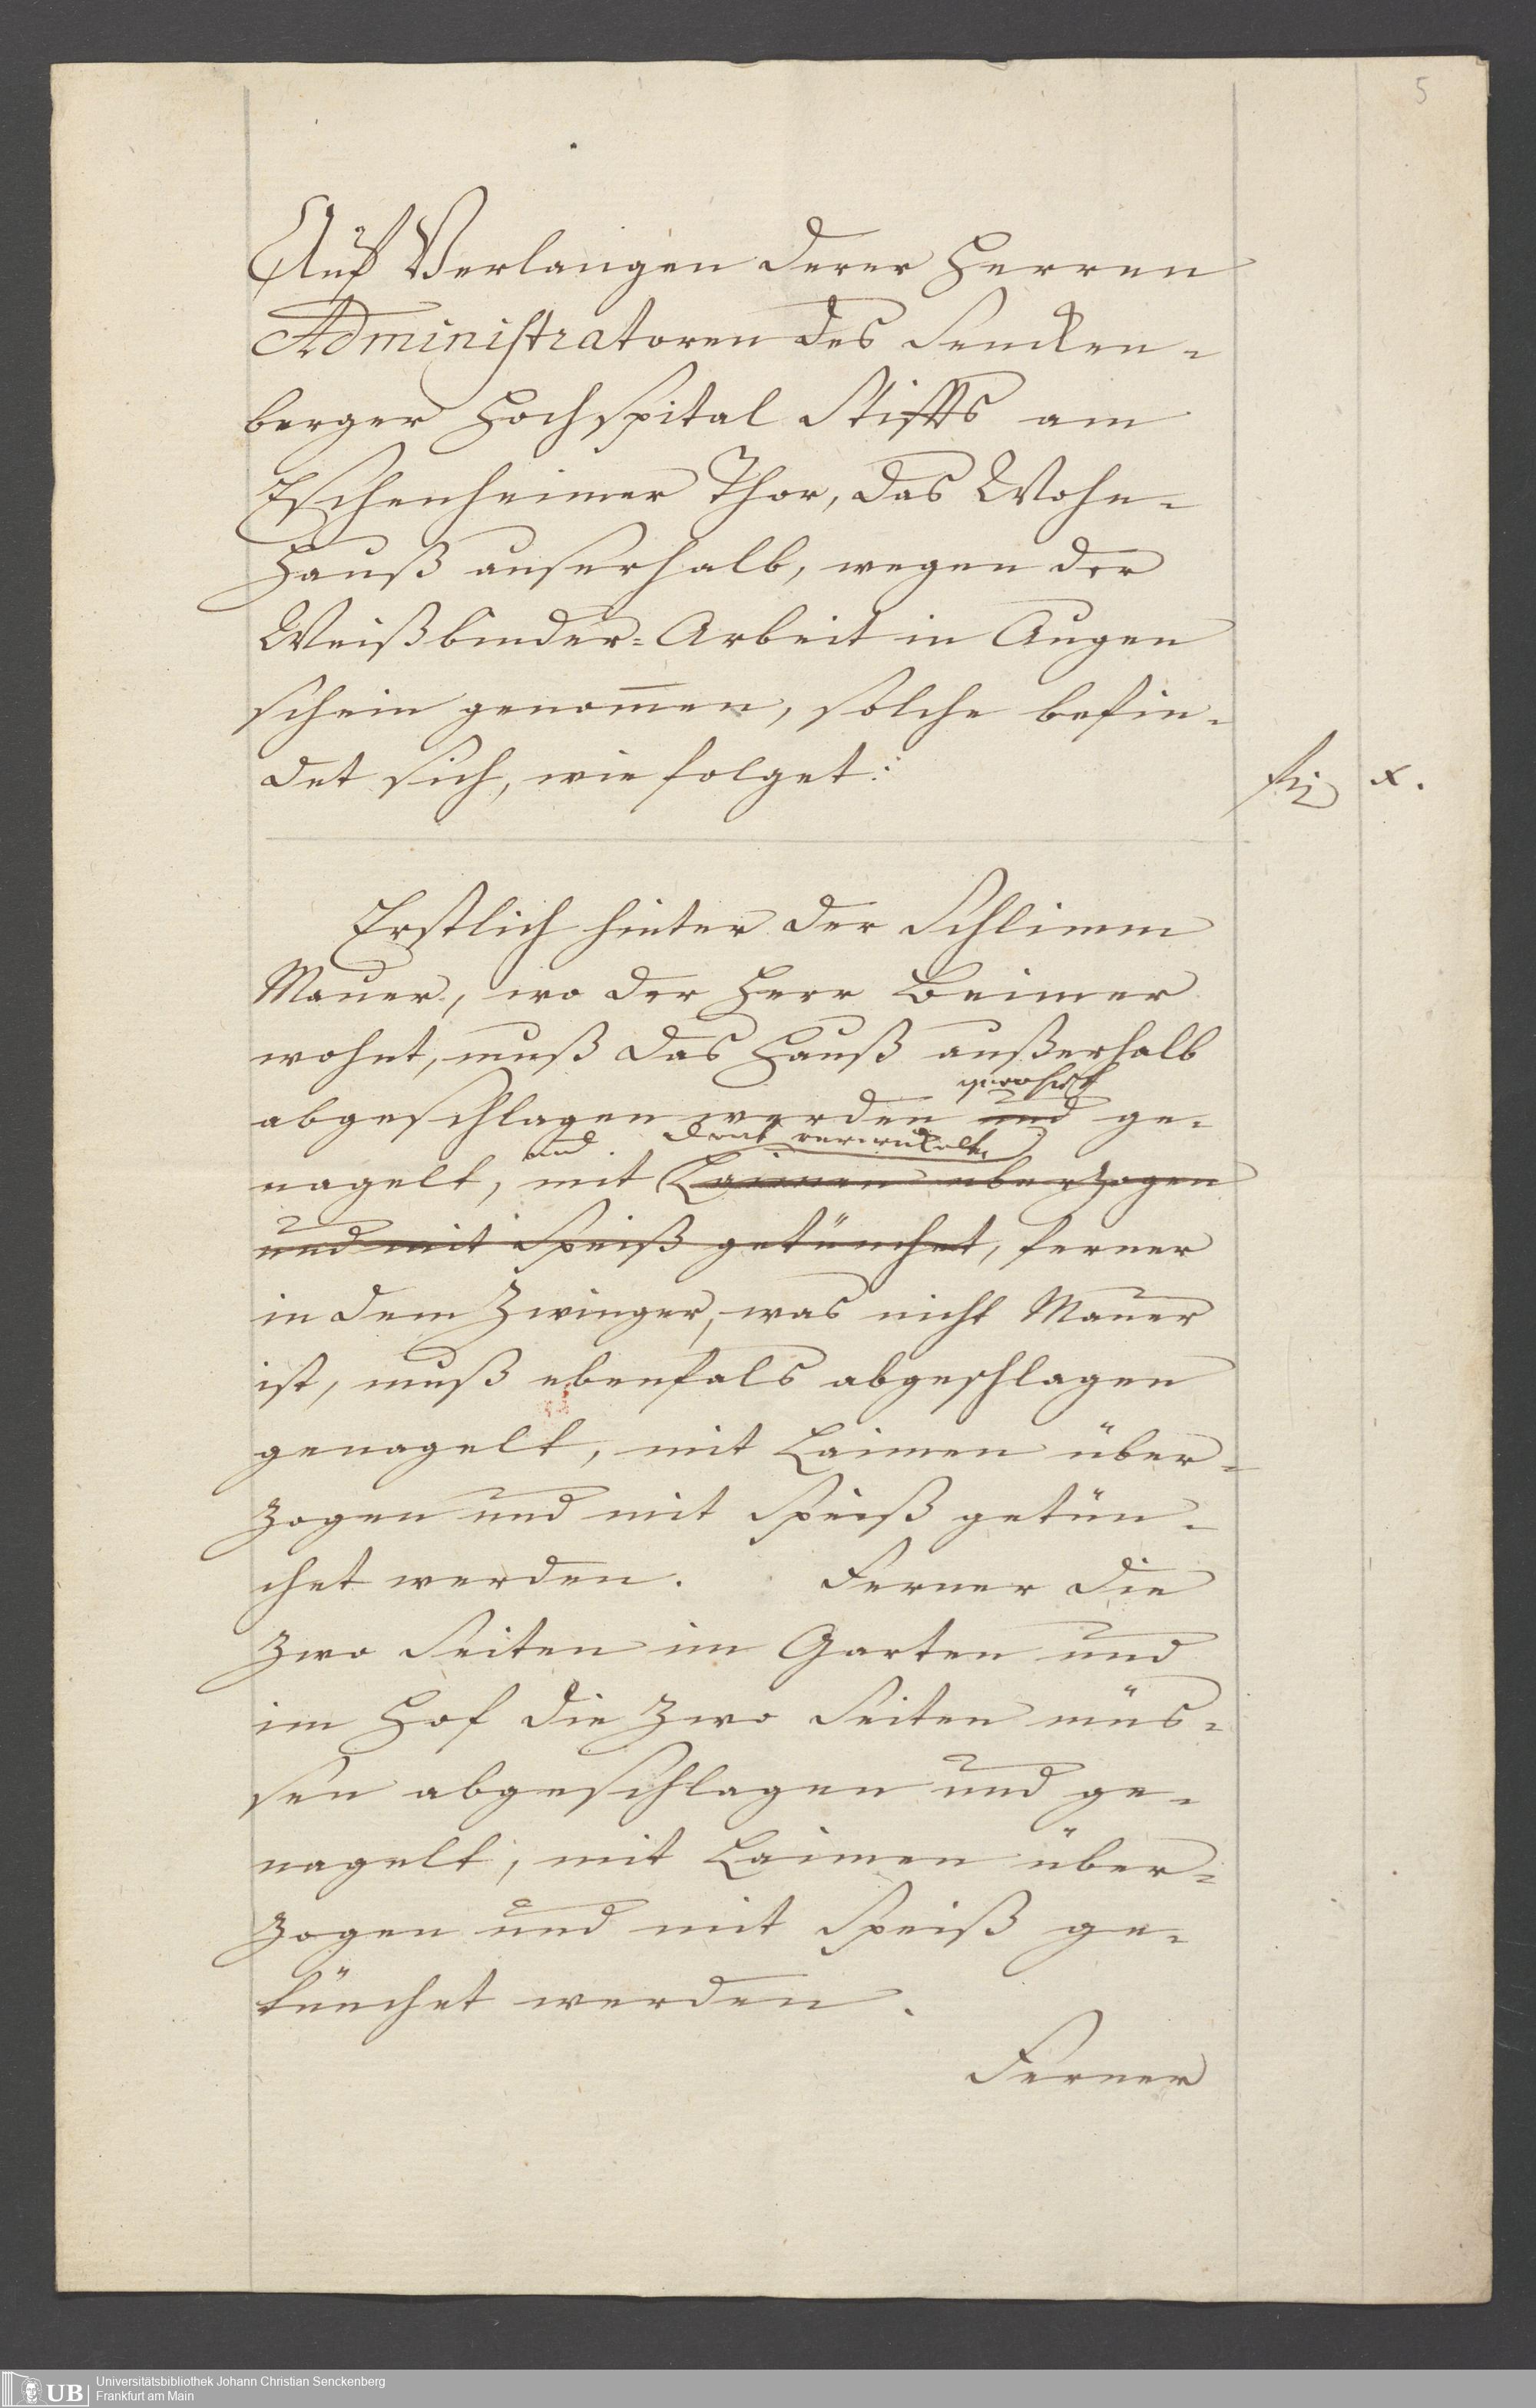 5
Auf Verlangen derer Herren
Administratoren des Sencken-
berger Hochspital Stiffts am
Eschenheimer Thor, das Wohn-
Hauß auserhalb, wegen der
Weißbinder-Arbeit in Augen
schein genommen, solche befin-
det sich, wie folget:
f x.
Erstlich hinter der Schlimm
Mauer, wo der Herr Beimer
wohnt, muß das Hauß außerhalb
abgeschlagen werden und ge-
und
nagelt, mit Laimen überzogen
und mit Speiß getünchet, ferner
in dem Zwinger, was nicht Mauer
ist, muß ebenfals abgeschlagen
genagelt, mit Laimen über-
zogen und mit Speiß getün-
chet werden. Ferner die
zwo Seiten im Garten und
im Hof die zwo Seiten müs-
sen abgeschlagen und ge-
nagelt, mit Laimen über-
zogen und mit Speiß ge-
tünchet werden.
Ferner
UB
Universitätsbibliothek Johann Christian Senckenberg
Frankfurt am Main